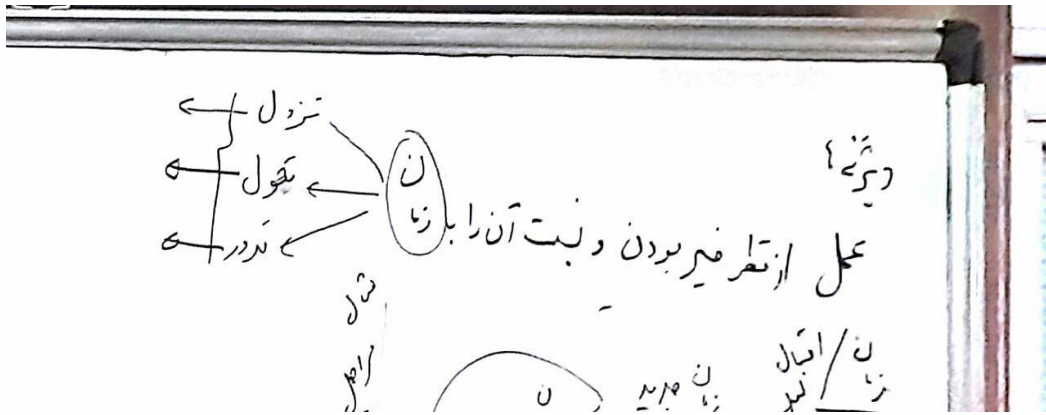 ویژگی
عمل از نظر خیر بودن و نسبت آن را با زمان
تنزول
تحول
تدور
مثال
مراحل
زمان / اقبال
زمان جدید
ن